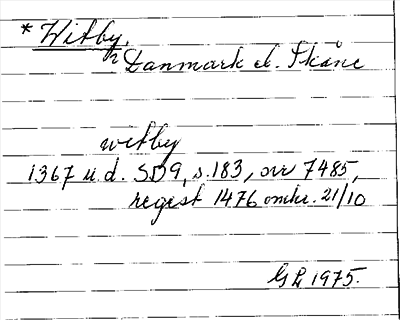 * Witby.
i Danmark el. Skåne
witby
1367 u.d. SD9, s. 183, or 7485,
regest 1476 omkr. 21/10
GL 1975.